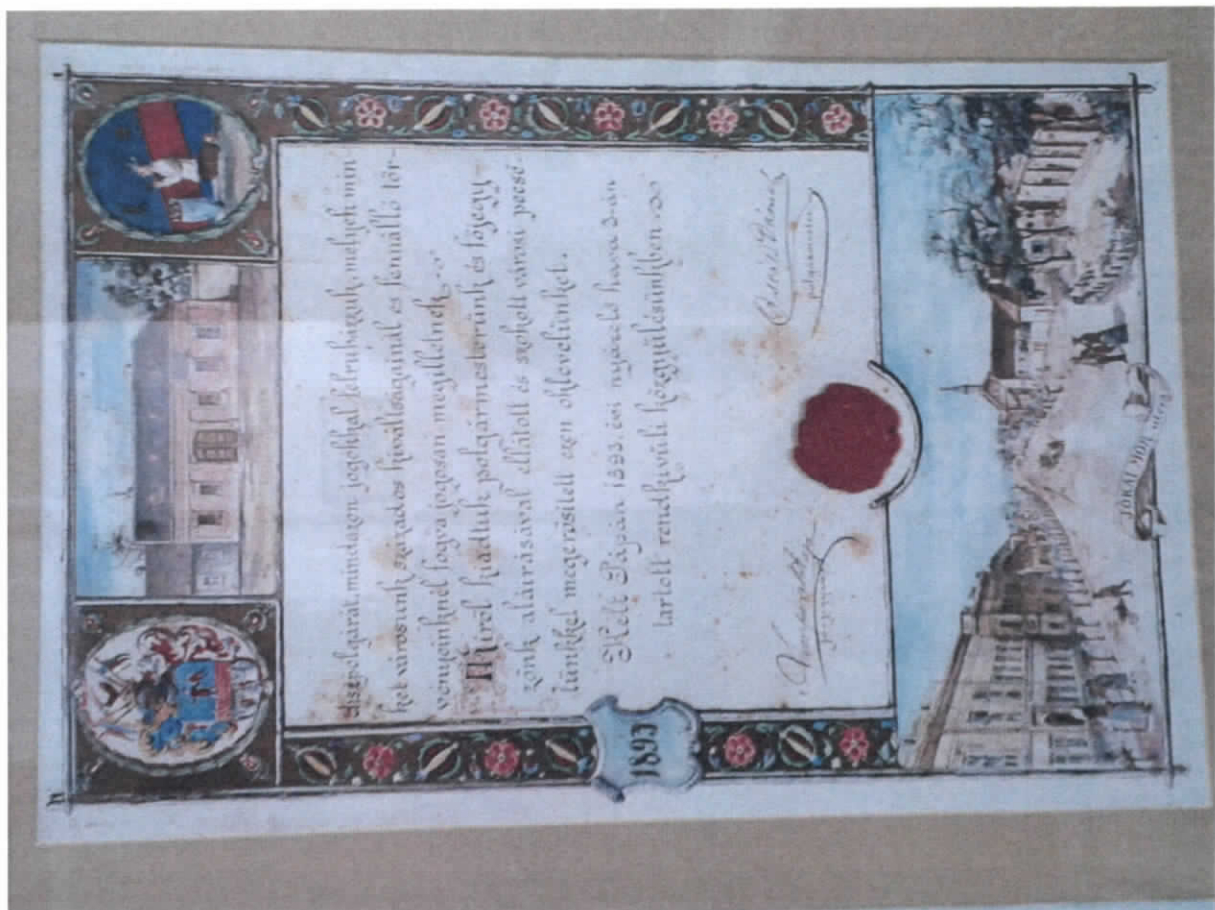 díszpolgárát, mindazon jogokkal felruházzuk, melyek min
ket városunk százados kiváltságainál és fennálló tör-
vényeinknél fogva jogosan megilletnek.
Miről kiadtuk polgármesterünk és főjegy-
zőnk aláírásával ellátott és szokott városi pecsé-
tünkkel megerősített ezen oklevelünket.
Kelt Pápán 1893. évi nyárelő hava 3-án
tartott rendkívüli közgyűlésünkben
főjegyző
polgármester
1893
JÓKAI MÓR utcza